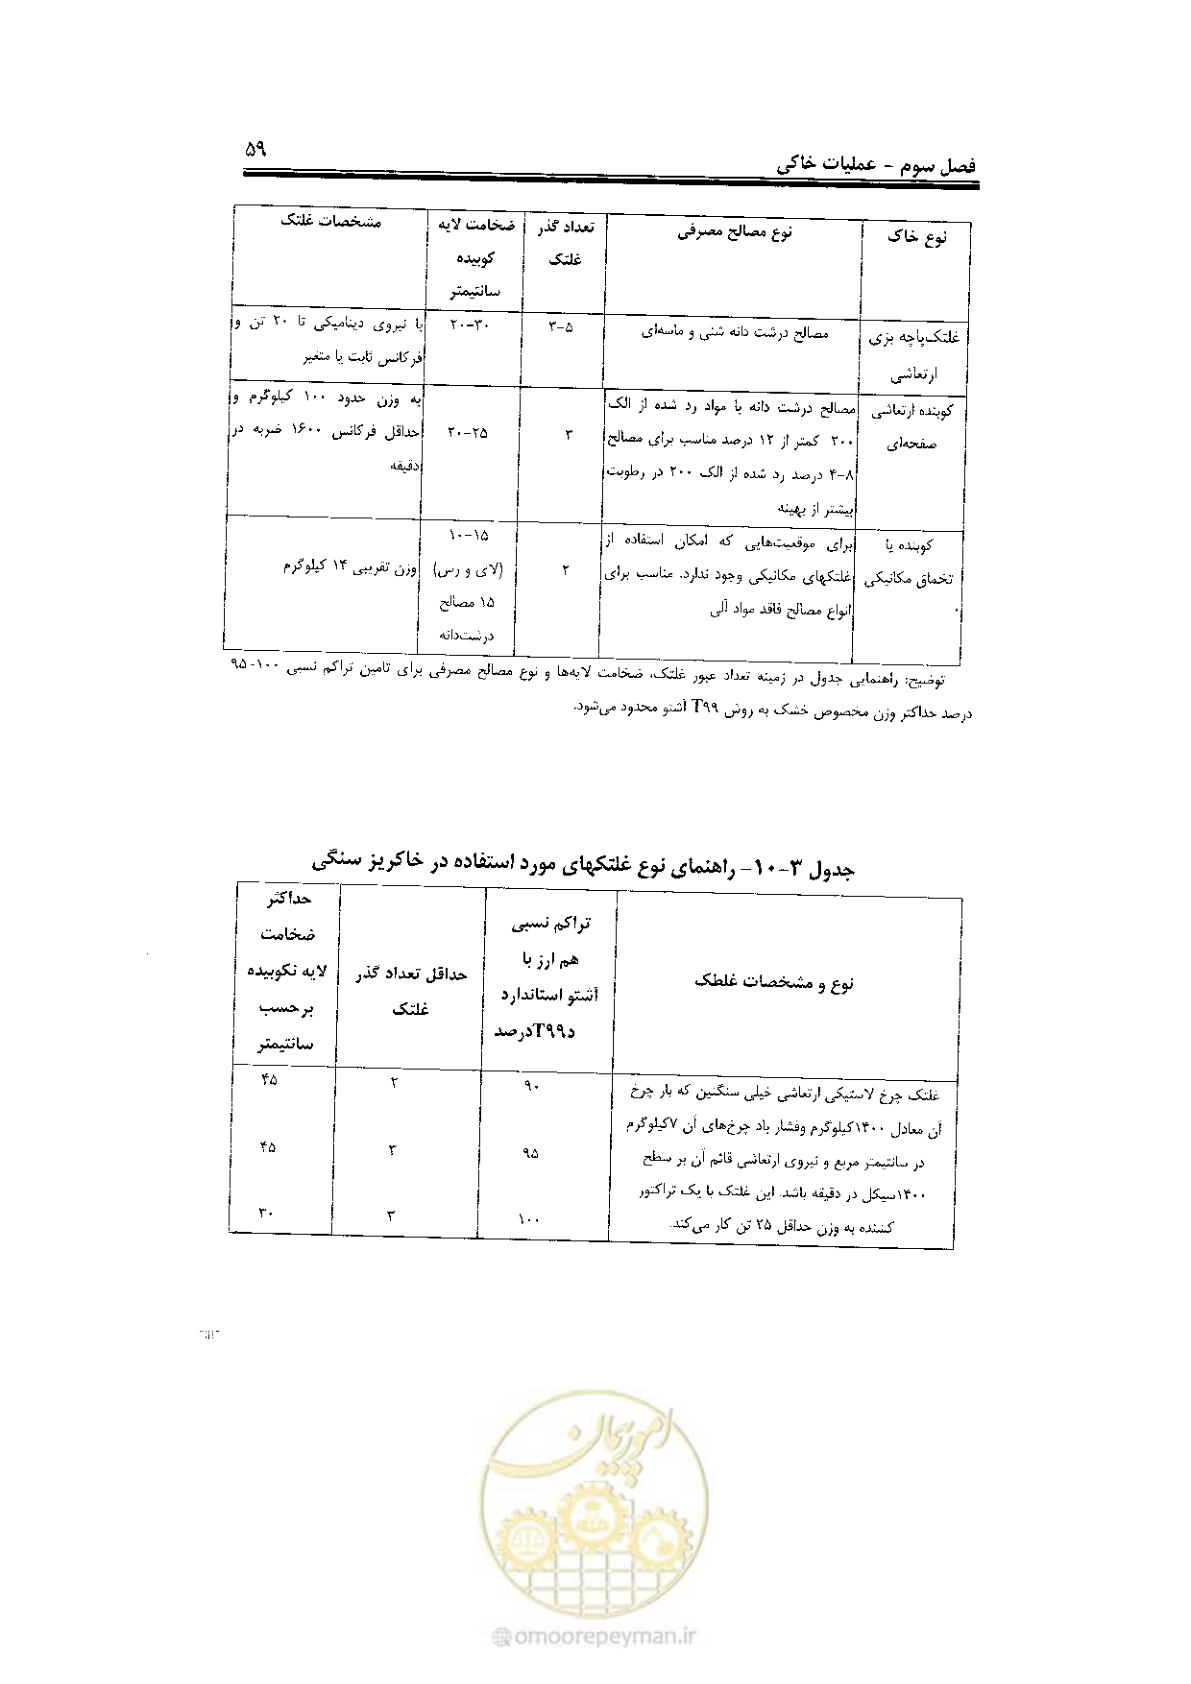 ۵۹
فصل سوم - عملیات خاکی
نوع خاک
نوع مصالح مصرفی
تعداد گذر
غلتک
ضخامت لایه
کوبیده
سانتیمتر
مشخصات غلتک
غلتک‌پاچه بزی
ارتعاشی
مصالح درشت دانه شنی و ماسه‌ای
۳-۵
۲۰-۳۰
با نیروی دینامیکی تا ۲۰ تن و
فرکانس ثابت یا متغیر
کوبنده ارتعاشی
صفحه‌ای
مصالح درشت دانه با مواد رد شده از الک
۲۰۰ کمتر از ۱۲ درصد مناسب برای مصالح
۴-۸ درصد رد شده از الک ۲۰۰ در رطوبت
بیشتر از بهینه
۳
۲۰-۲۵
به وزن حدود ۱۰۰ کیلوگرم و
حداقل فرکانس ۱۶۰۰ ضربه در
دقیقه
کوبنده یا
تخماق مکانیکی
برای موقعیت‌هایی که امکان استفاده از
غلتکهای مکانیکی وجود ندارد. مناسب برای
انواع مصالح فاقد مواد آلی
۲
۱۰-۱۵
(لای و رس)
۱۵ مصالح
درشت‌دانه
وزن تقریبی ۱۴ کیلوگرم
توضیح: راهنمایی جدول در زمینه تعداد عبور غلتک، ضخامت لایه‌ها و نوع مصالح مصرفی برای تامین تراکم نسبی ۱۰۰-۹۵
درصد حداکثر وزن مخصوص خشک به روش T۹۹ آشتو محدود می‌شود.
جدول ۳-۱۰- راهنمای نوع غلتکهای مورد استفاده در خاکریز سنگی
نوع و مشخصات غلطک
تراکم نسبی
هم ارز با
آشتو استاندارد
د۹۹Tدرصد
حداقل تعداد گذر
غلتک
حداکثر
ضخامت
لایه نکوبیده
برحسب
سانتیمتر
غلتک چرخ لاستیکی ارتعاشی خیلی سنگنین که بار چرخ
آن معادل ۱۴۰۰کیلوگرم وفشار باد چرخ‌های آن ۷کیلوگرم
در سانتیمتر مربع و نیروی ارتعاشی قائم آن بر سطح
۱۴۰۰سیکل در دقیقه باشد. این غلتک با یک تراکتور
کننده به وزن حداقل ۲۵ تن کار می‌کند.
۹۰
۲
۴۵
۹۵
۳
۴۵
۱۰۰
۳
۳۰
امور پیمان
@omoorepeyman.ir